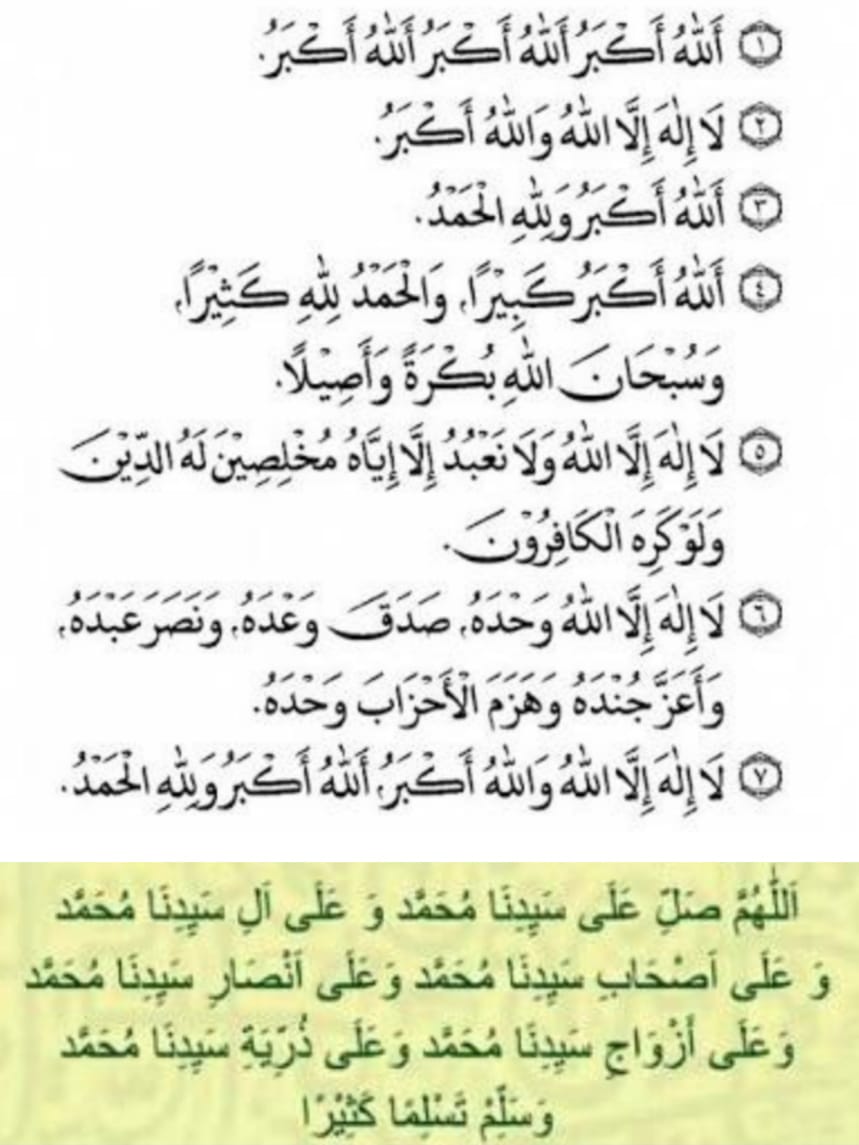 ١ أَللهُ أَكْبَرُ أَللهُ أَكْبَرُ أَللهُ أَكْبَرُ.
٢ لَا إِلٰهَ إِلَّا اللهُ وَاللهُ أَكْبَرُ.
٣ أَللهُ أَكْبَرُ وَلِلّٰهِ الْحَمْدُ.
٤ أَللهُ أَكْبَرُ كَبِيْرًا، وَالْحَمْدُ لِلّٰهِ كَثِيْرًا،
وَسُبْحَانَ اللهِ بُكْرَةً وَأَصِيْلًا.
٥ لَا إِلٰهَ إِلَّا اللهُ وَلَا نَعْبُدُ إِلَّا إِيَّاهُ مُخْلِصِيْنَ لَهُ الدِّيْنَ
وَلَوْ كَرِهَ الْكَافِرُوْنَ.
٦ لَا إِلٰهَ إِلَّا اللهُ وَحْدَهُ، صَدَقَ وَعْدَهُ، وَنَصَرَ عَبْدَهُ،
وَأَعَزَّ جُنْدَهُ وَهَزَمَ الْأَحْزَابَ وَحْدَهُ.
٧ لَا إِلٰهَ إِلَّا اللهُ وَاللهُ أَكْبَرُ، أَللهُ أَكْبَرُ وَلِلّٰهِ الْحَمْدُ.
اَللّٰهُمَّ صَلِّ عَلَى سَيِدِنَا مُحَمَّد وَ عَلَى اَلِ سَيِدِنَا مُحَمَّد
وَ عَلَى اَصْحَابِ سَيِدِنَا مُحَمَّد وَعَلَى اَنْصَارِ سَيِدِنَا مُحَمَّد
وَعَلَى أَزْوَاجِ سَيِدِنَا مُحَمَّد وَعَلَى ذُرِّيَةِ سَيِدِنَا مُحَمَّد
وَسَلِّمْ تَسْلِمًا كَثِيْرًا